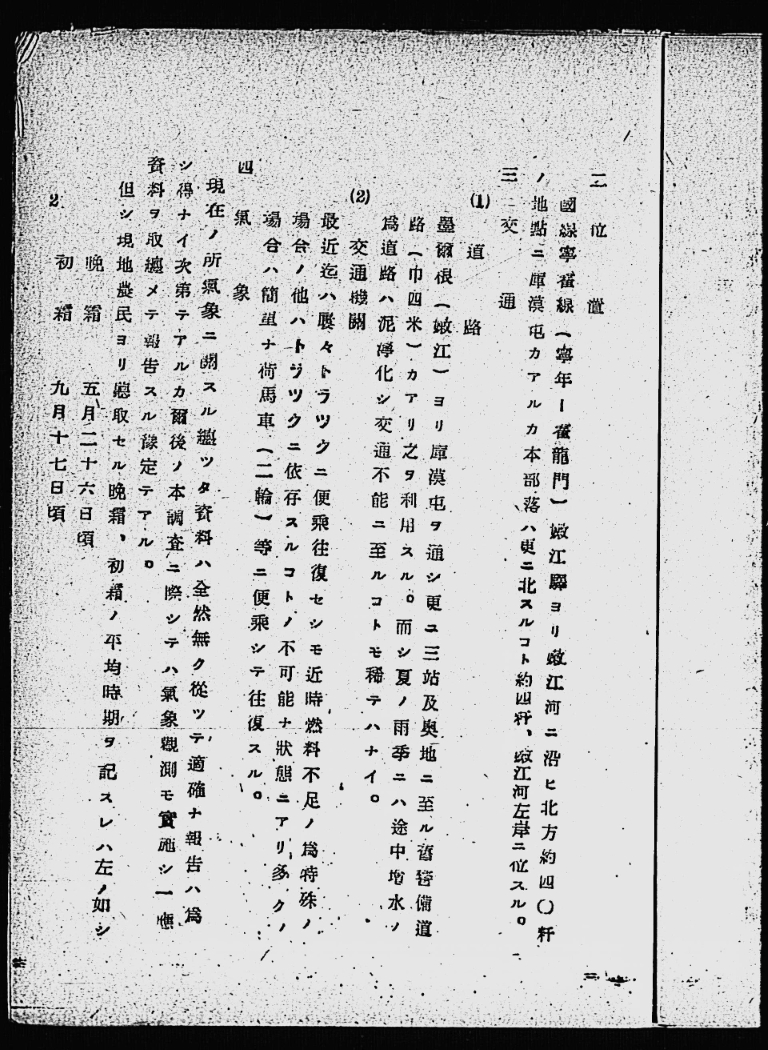 二 位 置
國線寧霍線（寧年ー霍龍門）嫩江驛ヨリ嫩江河ニ沿ヒ北方約四〇粁
ノ地點ニ庫漠屯カアルカ本部落ハ更ニ北スルコト約四粁、嫩江河左岸ニ位スル。
三 交 通
(1) 道 路
墨爾根（嫩江）ヨリ庫漠屯ヲ通シ更ニ三站及奥地ニ至ル舊警備道
路（巾四米）カアリ之ヲ利用スル。而シ夏ノ雨季ニハ途中増水ノ
爲道路ハ泥濘化シ交通不能ニ至ルコトモ稀テハナイ。
(2) 交通機關
最近迄ハ屡々トラツクニ便乘往復セシモ近時燃料不足ノ爲特殊ノ
場合ノ他ハトラツクニ依存スルコトノ不可能ナ狀態ニアリ多クノ
場合ハ簡單ナ荷馬車（二輪）等ニ便乘シテ往復スル。
四 氣 象
現在ノ所氣象ニ關スル纏ツタ資料ハ全然無ク從ツテ適確ナ報告ハ爲
シ得ナイ次第テアルカ爾後ノ本調査ニ際シテハ氣象觀測モ實施シ一應
資料ヲ取纏メテ報告スル豫定テアル。
但シ現地農民ヨリ聽取セル晩霜、初霜ノ平均時期ヲ記スレハ左ノ如シ
晩 霜 五月二十六日頃
初 霜 九月十七日頃
2